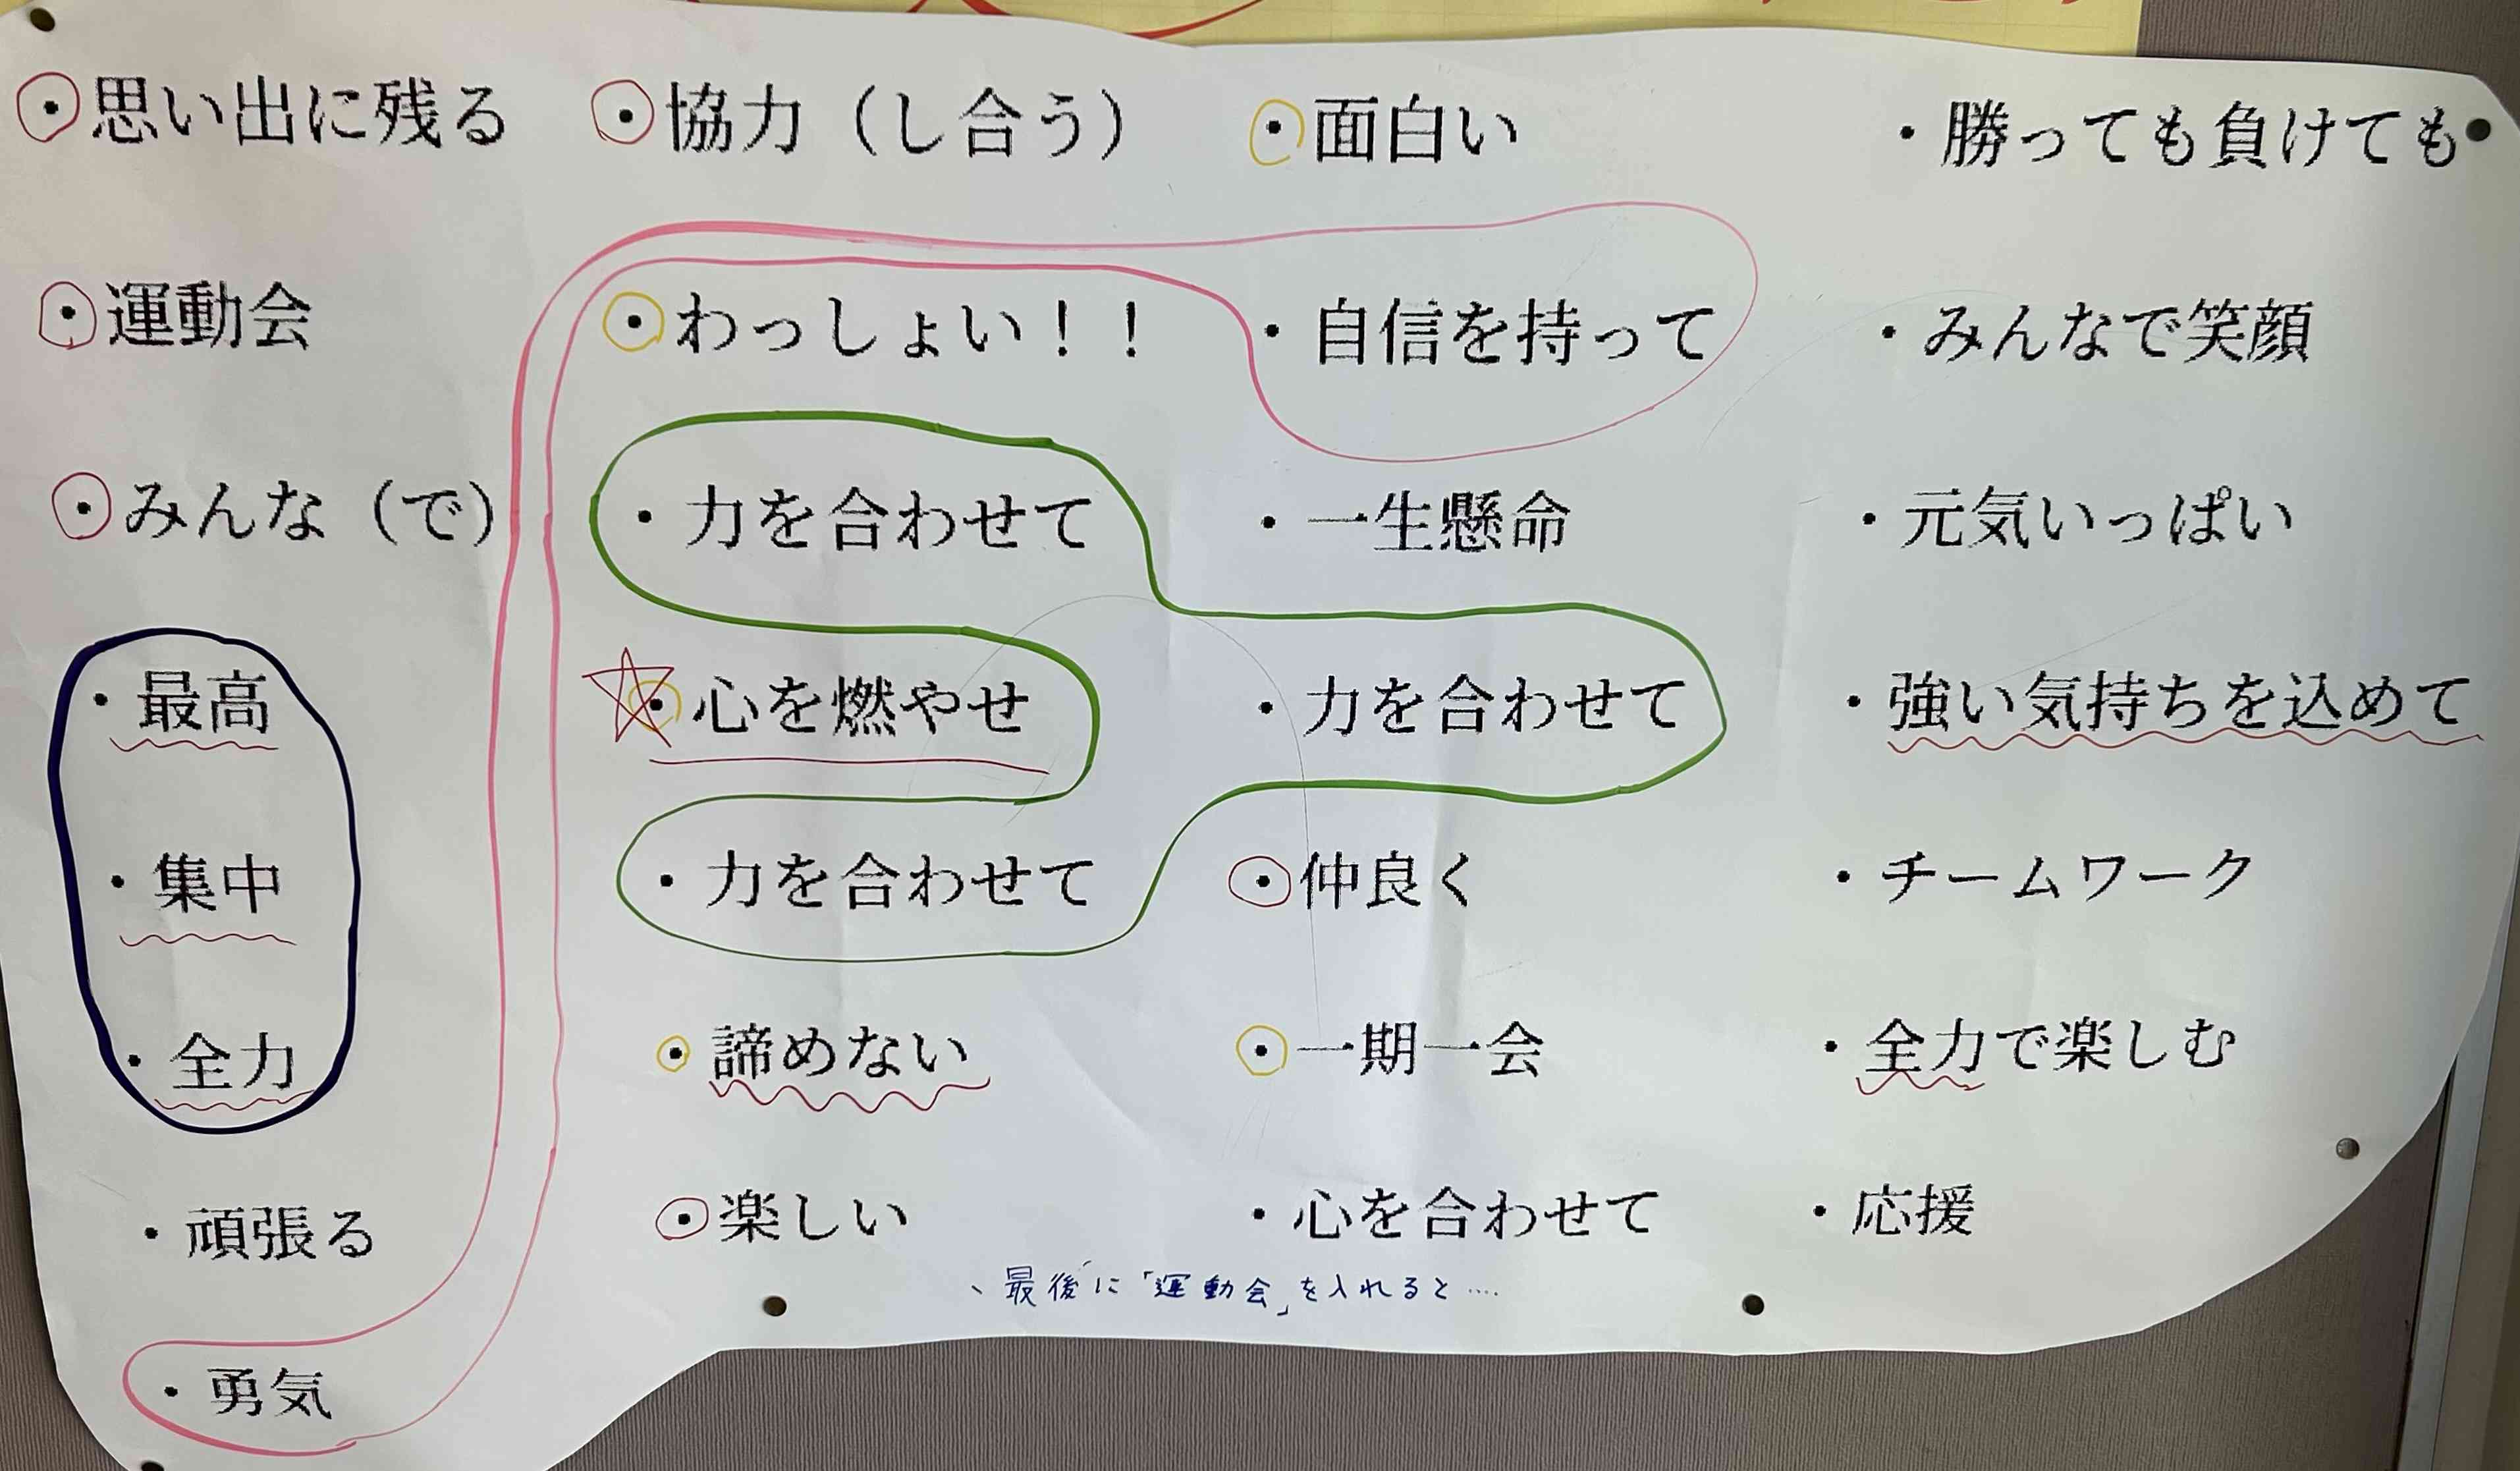 ・思い出に残る
・運動会
・みんな（で）
・最高
・集中
・全力
・頑張る
・勇気
・協力（し合う）
・わっしょい！！
・力を合わせて
・心を燃やせ
・力を合わせて
・諦めない
・楽しい
・面白い
・自信を持って
・一生懸命
・力を合わせて
・仲良く
・一期一会
・心を合わせて
・勝っても負けても
・みんなで笑顔
・元気いっぱい
・強い気持ちを込めて
・チームワーク
・全力で楽しむ
・応援
、最後に「運動会」を入れると‥‥